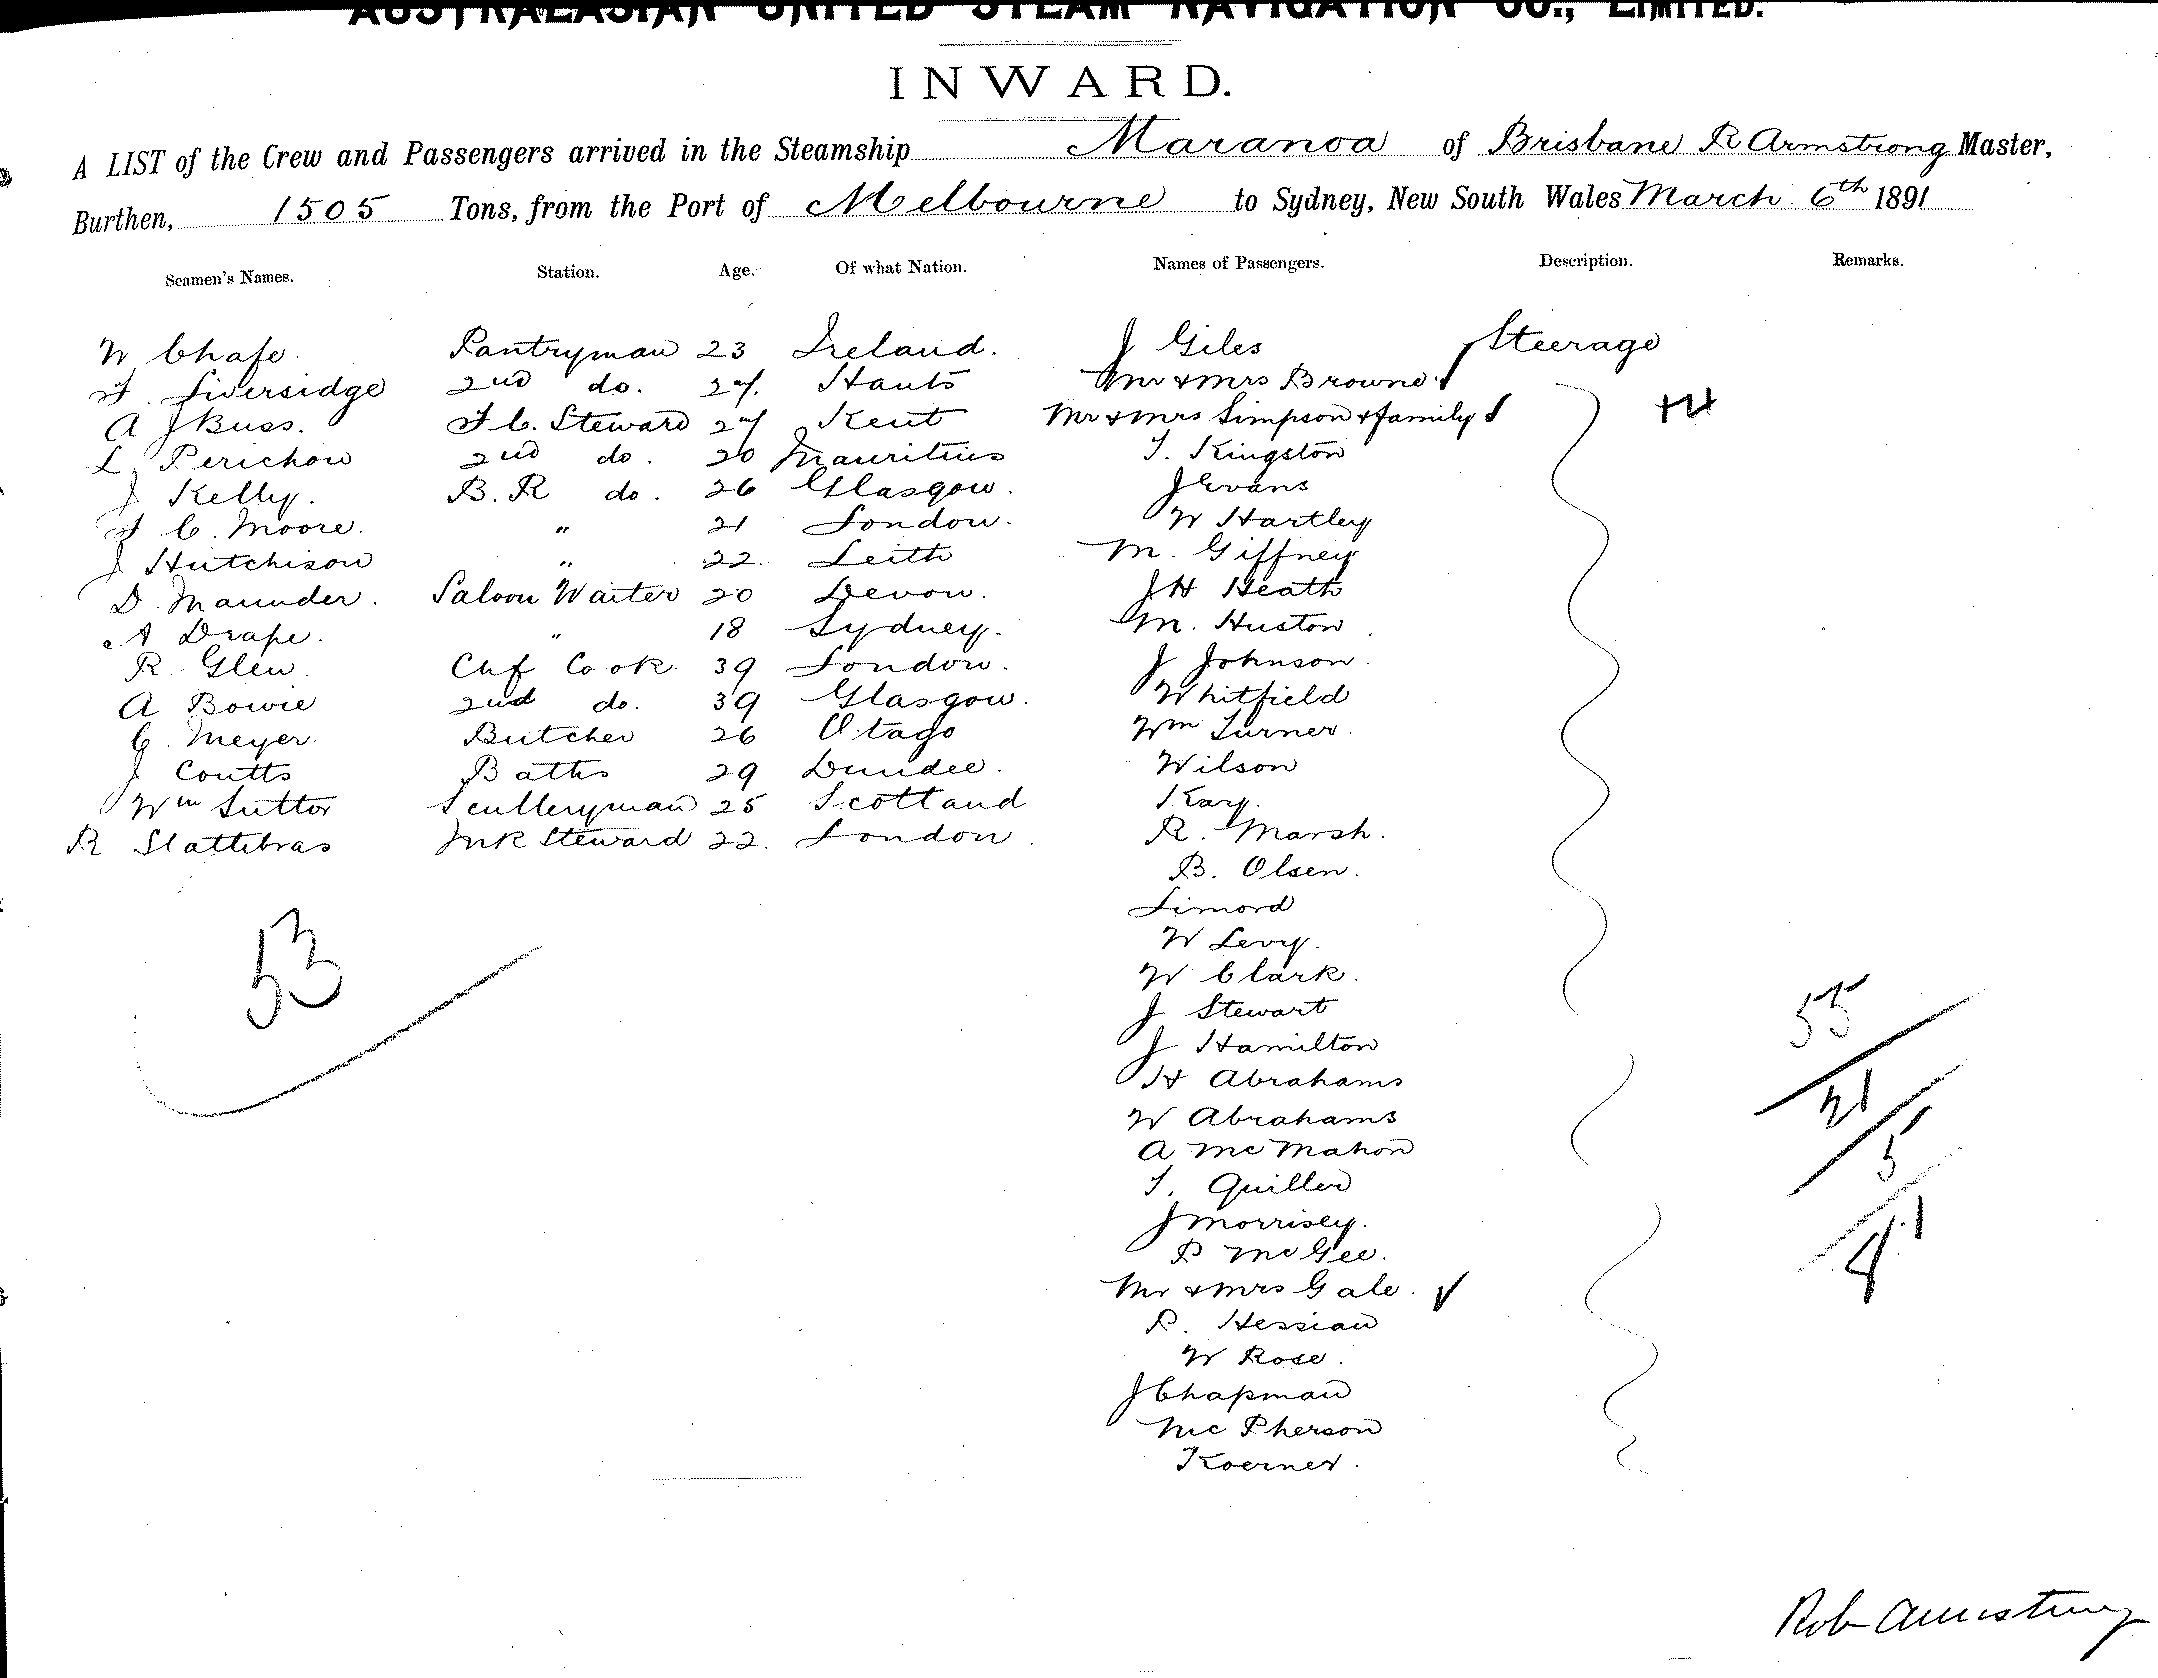 AUSTRALASIAN UNITED STEAM NAVIGATION CO., LIMITED.
INWARD.
A LIST of the Crew and Passengers arrived in the Steamship Maranoa of Brisbane R Armstrong Master,
Burthen, 1505 Tons, from the Port of Melbourne to Sydney, New South Wales March 6th 1891
Seamen's Names. Station. Age. Of what Nation. Names of Passengers. Description. Remarks.
W Chafe. Pantryman 23 Ireland. J Giles Steerage
F. Liversidge 2nd do. 27. Hants Mr & Mrs Browne
A J Buss. F.C. Steward 27 Kent Mr & Mrs Simpson & family
L Perichon 2nd do. 20 Mauritius T. Kingston
J Kelly. B.R do. 26 Glasgow. J Evans
F C. Moore. " 21 London. W Hartley
J Hutchison " 22. Leith M. Giffney
D. Maunder. Saloon Waiter 20 Devon. J H Heath
A Drape. " 18 Sydney. M. Huston
R. Glen. Chf Cook 39 London. J Johnson.
A Bowie 2nd do. 39 Glasgow. Whitfield
C. Meyer. Butcher 26 Otago Wm Turner.
J Coutts Baths 29 Dundee. Wilson
Wm Suttor Sculleryman 25 Scotland Kay.
R Slattebras Mk Steward 22. London R. Marsh.
B. Olsen.
Simord
W Levy.
53
W Clark.
J Stewart
55
J Hamilton
H Abrahams
21
W Abrahams
A McMahon
5
T. Quiller
J Morrisey.
41
P McGee.
Mr & Mrs Gale.
P. Hessian
W Rose.
J Chapman
McPherson
Koerner.
Rob Armstrong